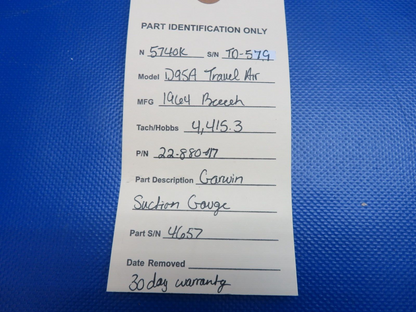 PART IDENTIFICATION ONLY
N 5740K S/N TD-579
Model D95A Travel Air
MFG 1964 Beech
Tach/Hobbs 4,415.3
P/N 22-880-017
Part Description Garwin
Suction Gauge
Part S/N 4657
Date Removed
30 day warranty